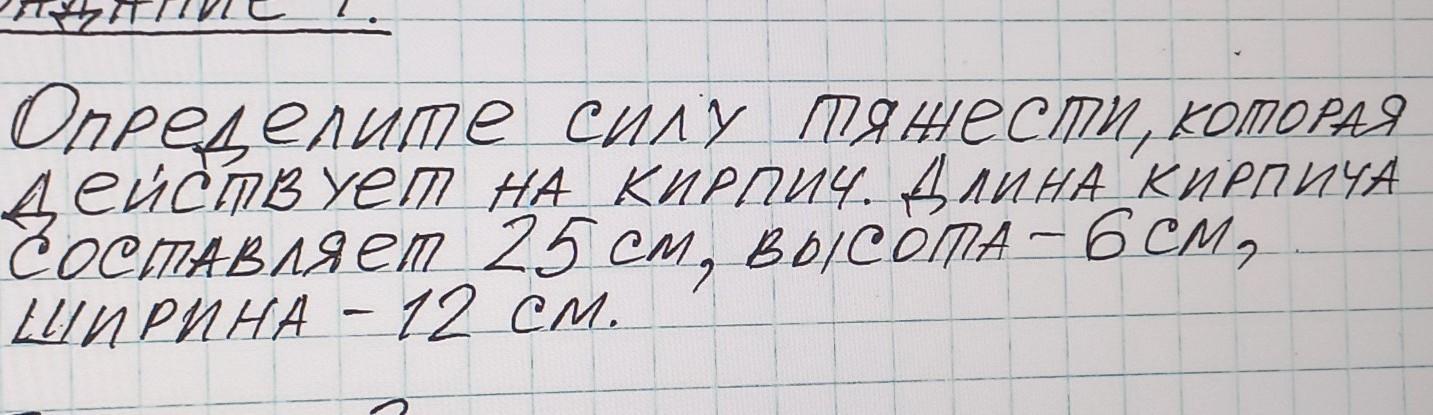 Задание 1.
Определите силу тяжести, которая
действует на кирпич. Длина кирпича
составляет 25 см, высота - 6 см,
ширина - 12 см.